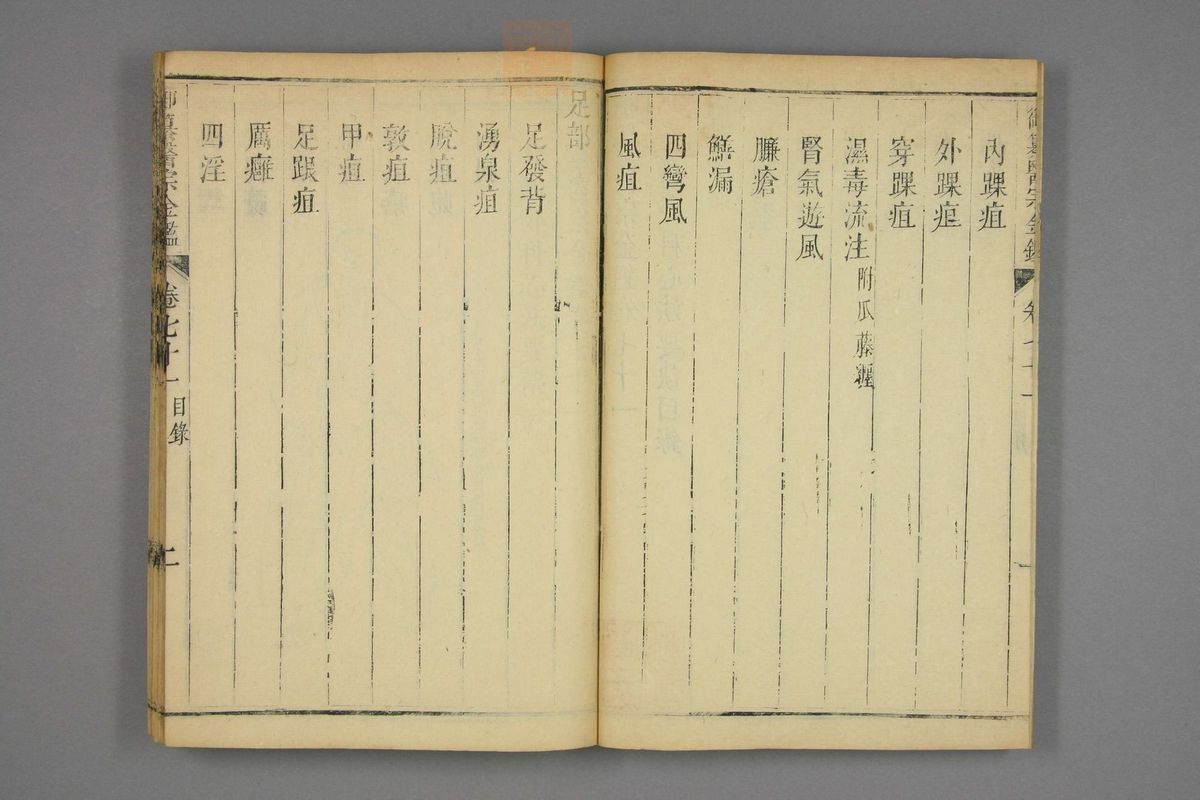 御纂醫宗金鑑
內踝疽
外踝疽
穿踝疽
濕毒流注 附瓜藤纏
腎氣遊風
臁瘡
鱔漏
四彎風
風疽
足部
足發背
湧泉疽
脫疽
敦疽
甲疽
足跟疽
厲癰
四淫
御纂醫宗金鑑 卷七十一 目錄